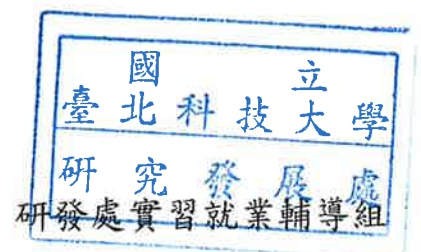 國立
臺北科技大學
研究發展處
研發處實習就業輔導組